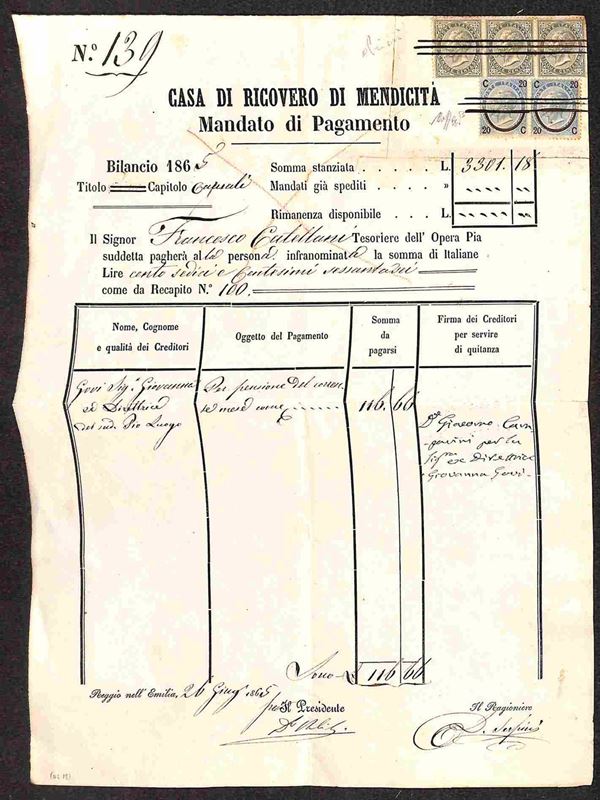 N.º 139
CASA DI RICOVERO DI MENDICITÀ
Mandato di Pagamento
Bilancio 1865
Titolo Capitolo
Somma stanziata . . . . . . L. 3301. 18
Mandati già spediti . . . . »
Rimanenza disponibile . . . . L.
Il Signor Francesco Catellani Tesoriere dell' Opera Pia
suddetta pagherà alla persona infranominata la somma di Italiane
Lire cento sedici e Centesimi sessantasei
come da Recapito N.º 100.
Nome, Cognome
e qualità dei Creditori
Oggetto del Pagamento
Somma
da
pagarsi
Firma dei Creditori
per servire
di quitanza
Govi Sig.ª Giovanna
ex Direttrice
del sud. Pio Luogo
Per pensione del corren
te mese come
116. 66
Dr Giacomo
per la
Sig.ra ex Direttrice
Giovanna Govi.
Sono L 116 66
Reggio nell'Emilia, 26 Giug. 1865
Il Presidente
Il Ragioniere
C 20
20 C
C 20
20 C